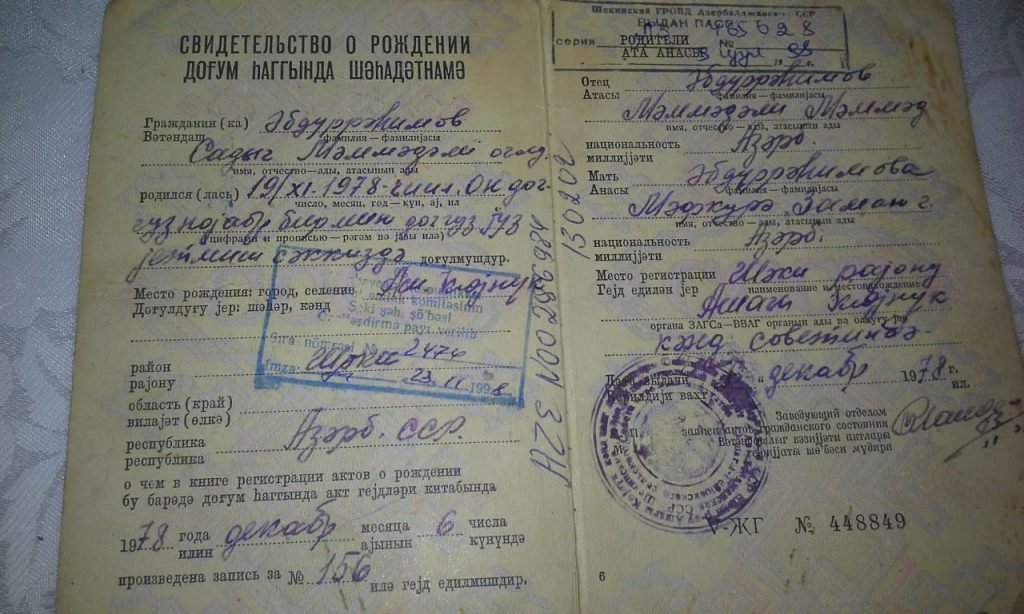 СВИДЕТЕЛЬСТВО О РОЖДЕНИИ
ДОҒУМ ҺАГГЫНДА ШӘҺАДӘТНАМӘ
Гражданин (ка) Әбдуррәһимов
Вәтәндаш фамилия — фамилијасы
Садыг Мәммәдәли оғлу
имя, отчество — ады, атасынын ады
родился (лась) 19/XI-1978-чи ил. Он дог-
число, месяц, год — күн, ај, ил
гуз нојабр бир мин доггуз јүз
(цифрами и прописью — рәгәм вә јазы илә)
јетмиш сәккиздә доғулмушдур.
Место рождения: город, селение
Доғулдуғу јер: шәһәр, кәнд
Шәки
район
рајону
область (край)
вилајәт (өлкә)
республика Азәрб. ССР.
республика
о чем в книге регистрации актов о рождении
бу барәдә доғум һаггында акт гејдләри китабында
1978 года декабр месяца 6 числа
илин ајынын күнүндә
произведена запись за № 156 илә гејд едилмишдир.
Şəki şəh. şö'bəsi
2474
imza
1998
AZE N002956984
130202
Шекинский ГРОВД Азербайджанск ССР
ВЫДАН ПАСП
серия № 465628
РОДИТЕЛИ
АТА АНАСЫ
Отец Әбдуррәһимов
Атасы фамилия — фамилијасы
Мәммәдәли Мәммәд
имя, отчество — ады, атасынын ады
национальность Азәрб.
миллијјәти
Мать Әбдуррәһимова
Анасы фамилия — фамилијасы
Мәфкурә Заман г.
имя, отчество — ады, атасынын ады
национальность Азәрб.
миллијјәти
Место регистрации Шәки рајону
Гејд едилән јер наименование и местонахождение
Ашағы Көјнүк
органа ЗАГСа — ВВАГ органын ады вә олдуғу јер
кәнд советиндә
Дата выдачи декабр 1978 г.
Верилдији вахт ил.
Заведующий отделом
записи актов гражданского состояния
Вәтәндашлыг вәзијјәти актлары
гејдијјаты шө'бәси мүдири
V-ЖГ № 448849
6